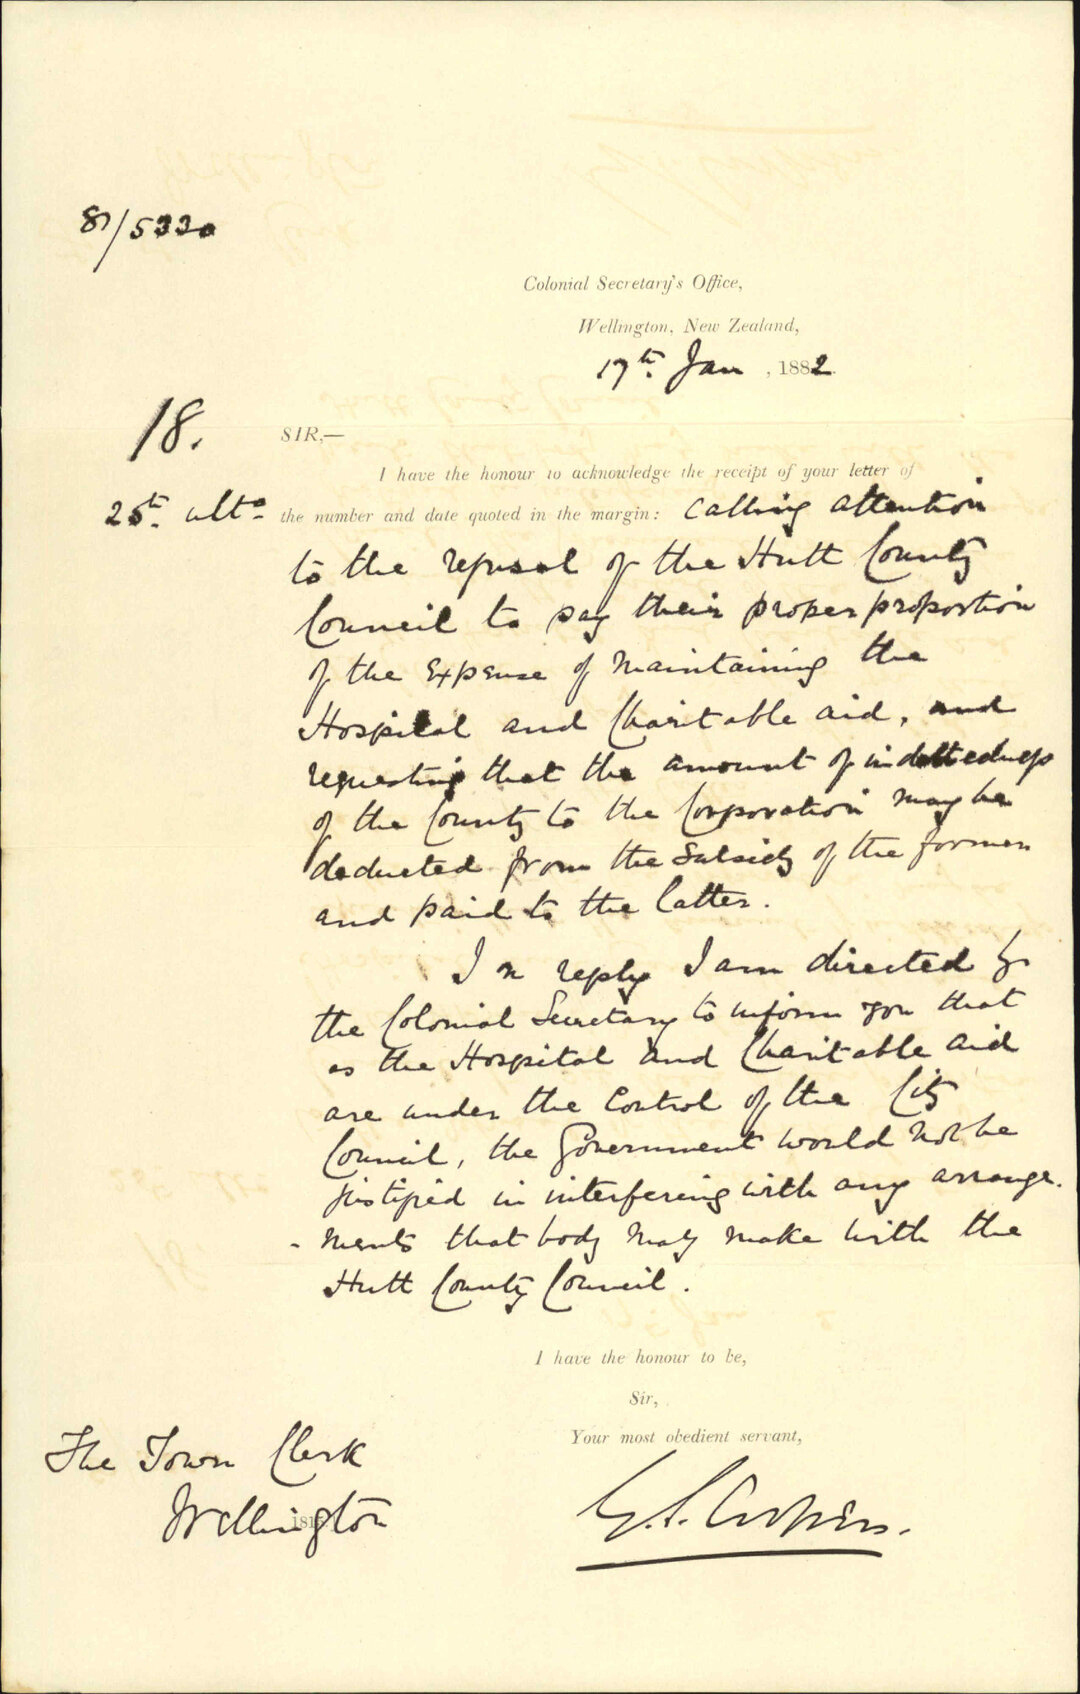 81/5330
Colonial Secretary's Office,
Wellington, New Zealand,
17th. Jan, 1882.
18.
SIR,—
I have the honour to acknowledge the receipt of your letter of
25th. ulto.
the number and date quoted in the margin: calling attention
to the refusal of the Hutt County
Council to pay their proper proportion
of the expense of maintaining the
Hospital and Charitable aid, and
requesting that the amount of indebtedness
of the County to the Corporation may be
deducted from the subsidy of the former
and paid to the latter.
In reply I am directed by
the Colonial Secretary to inform you that
as the Hospital and Charitable Aid
are under the control of the City
Council, the Government would not be
justified in interfering with any arrange-
-ments that body may make with the
Hutt County Council.
I have the honour to be,
Sir,
Your most obedient servant,
The Town Clerk
Wellington
G. S. Cooper.